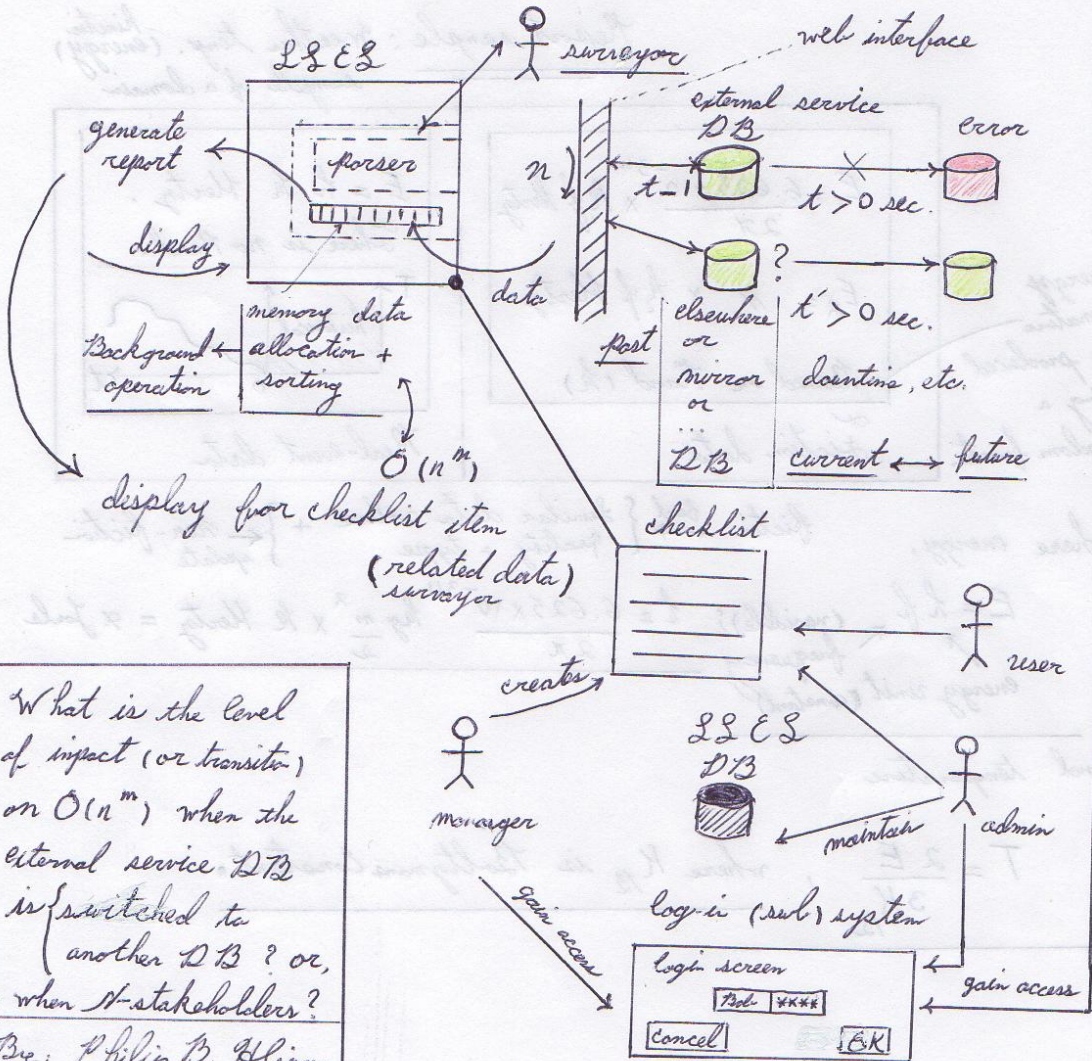 LSES
surveyor
web interface
generate
report
parser
external service
DB
error
n
t=1
t > 0 sec.
display
data
?
memory data
allocation +
sorting
Background
operation
past
elsewhere
or
mirror
or
...
DB
t' > 0 sec.
downtime, etc.
current
future
O(n^m)
display for checklist item
(related data)
surveyor
checklist
creates
user
manager
LSES
DB
maintain
admin
gain access
log-in (sub) system
login screen
Bob
****
cancel
OK
gain access
What is the level
of impact (or transition)
on O(n^m) when the
external service DB
is { switched to
another DB ? or,
when N-stakeholders ?
By: Philip B.